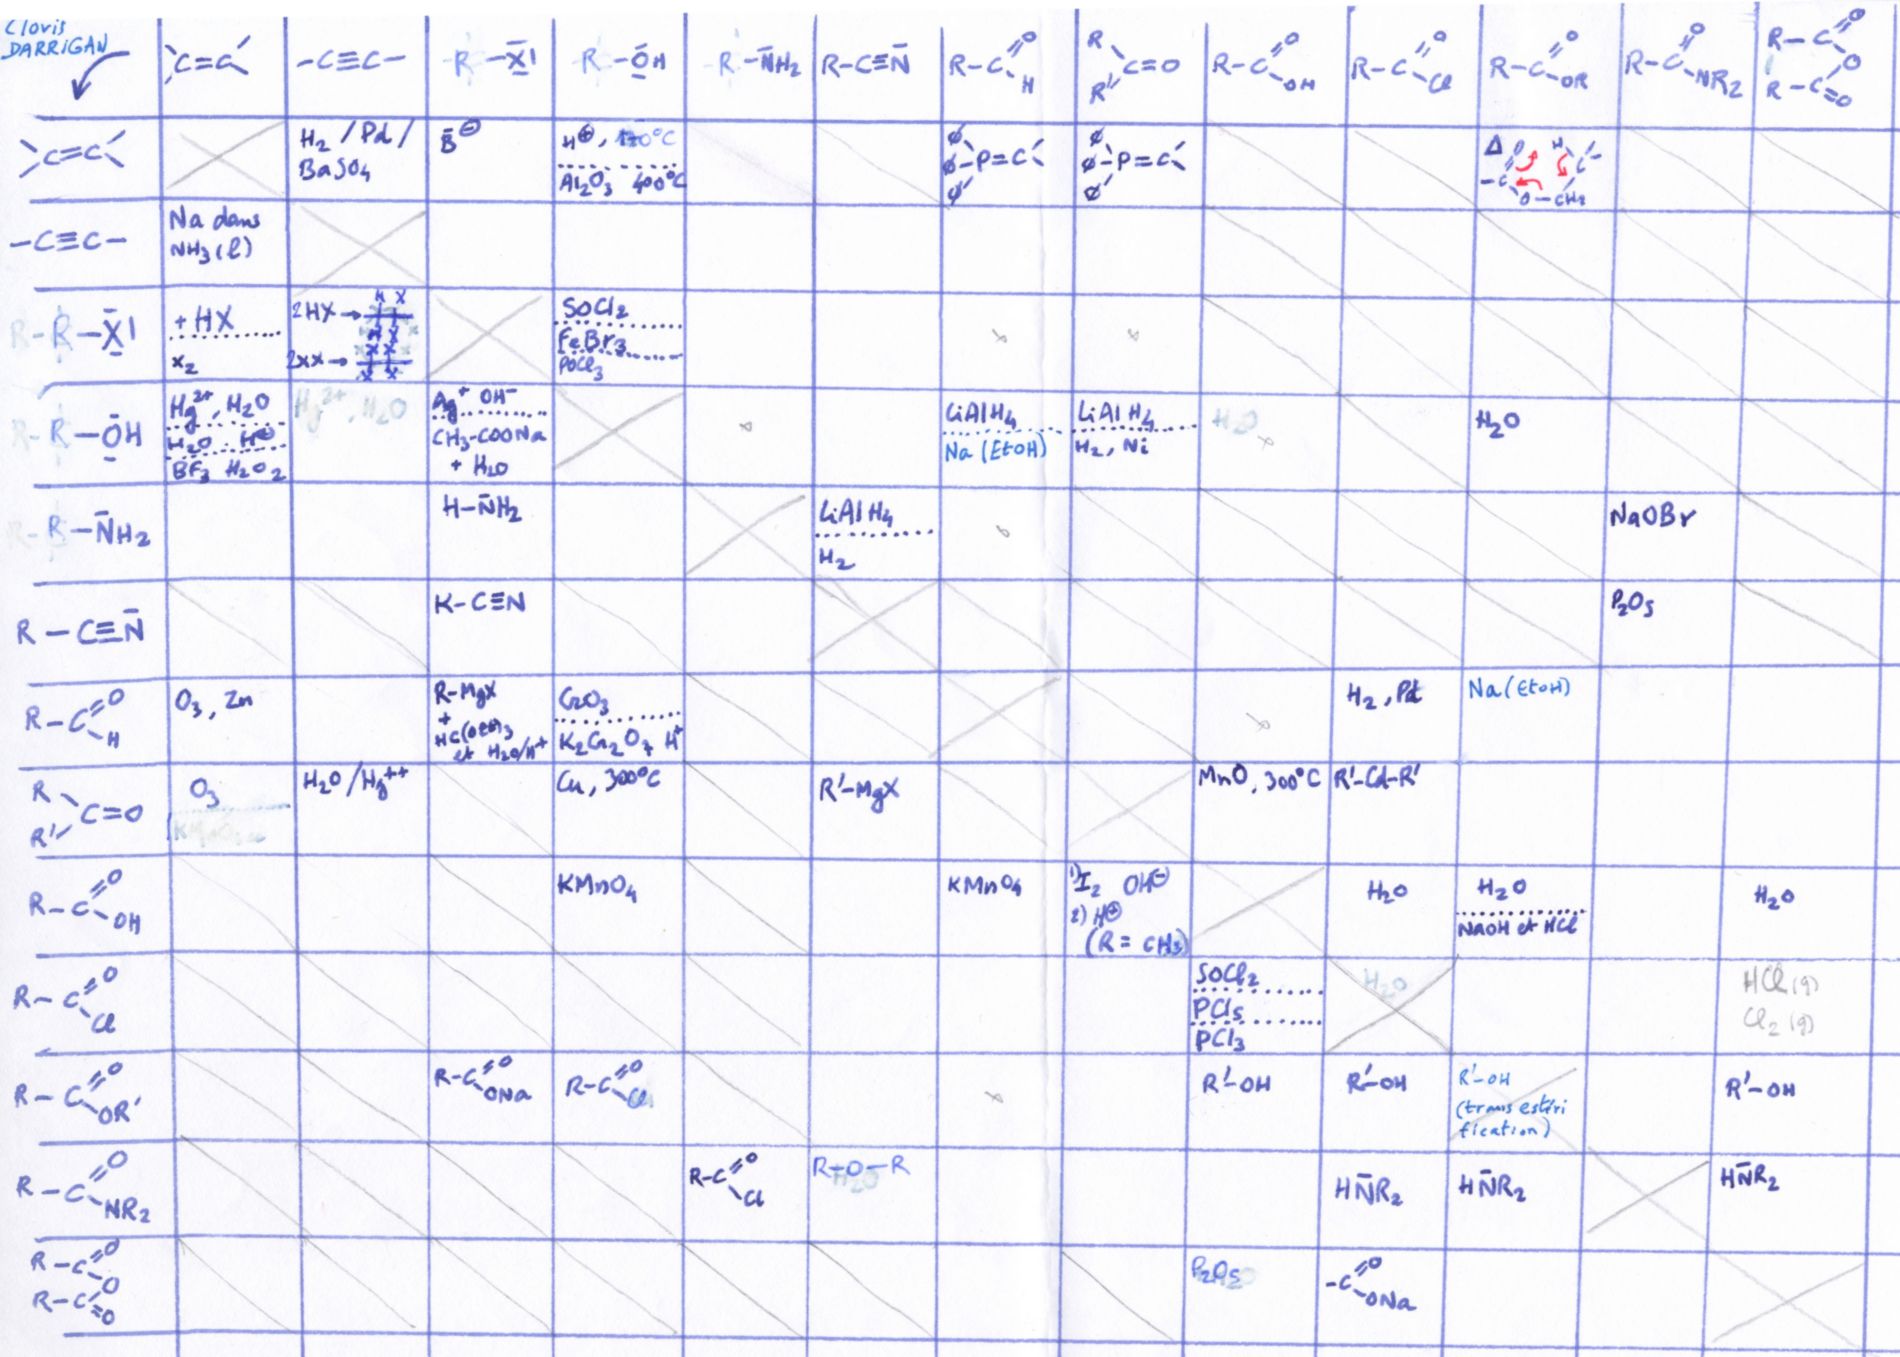 Clovis
DARRIGAN
C=C -C≡C- R-X̄| R-ŌH R-N̄H₂ R-C≡N̄ R-C(=O)H R R' C=O R-C(=O)OH R-C(=O)Cl R-C(=O)OR R-C(=O)NR₂ R-C(=O)-O-C(=O)-R
C=C
H₂ / Pd /
BaSO₄
B̄⊖
H⊕, °C
Al₂O₃ 400°C
ϕ ϕ ϕ P=C
ϕ ϕ ϕ P=C
Δ -C(=O) O-CH₂ C H
-C≡C-
Na dans
NH₃(l)
R-X̄|
+ HX
X₂
2HX → H X H X
2XX → X X X X
SOCl₂
FeBr₃
POCl₃
R-ŌH
Hg²⁺, H₂O
H₂O H⊕
BF₃ H₂O₂
Hg²⁺, H₂O
Ag⁺ OH⁻
CH₃-COONa
+ H₂O
LiAlH₄
Na (EtOH)
LiAlH₄
H₂, Ni
H₂O
H₂O
R-N̄H₂
H-N̄H₂
LiAlH₄
H₂
NaOBr
R-C≡N̄
K-C≡N
P₂O₅
R-C(=O)H
O₃, Zn
R-MgX
+
HC(OEt)₃
et H₂O/H⁺
CrO₃
K₂Cr₂O₇ H⁺
H₂, Pd
Na (EtOH)
R R' C=O
O₃
H₂O/Hg⁺⁺
Cu, 300°C
R'-MgX
MnO, 300°C
R'-Cd-R'
R-C(=O)OH
KMnO₄
KMnO₄
1) I₂ OH⊖
2) H⊕
(R = CH₃)
H₂O
H₂O
NaOH et HCl
H₂O
R-C(=O)Cl
SOCl₂
PCl₅
PCl₃
H₂O
HCl (g)
Cl₂ (g)
R-C(=O)OR'
R-C(=O)ONa
R-C(=O)Cl
R'-OH
R'-OH
R'-OH
(trans estéri
fication)
R'-OH
R-C(=O)NR₂
R-C(=O)Cl
R-O-R
H₂O
HN̄R₂
HN̄R₂
HN̄R₂
R-C(=O)-O-C(=O)-R
P₂O₅
-C(=O)ONa